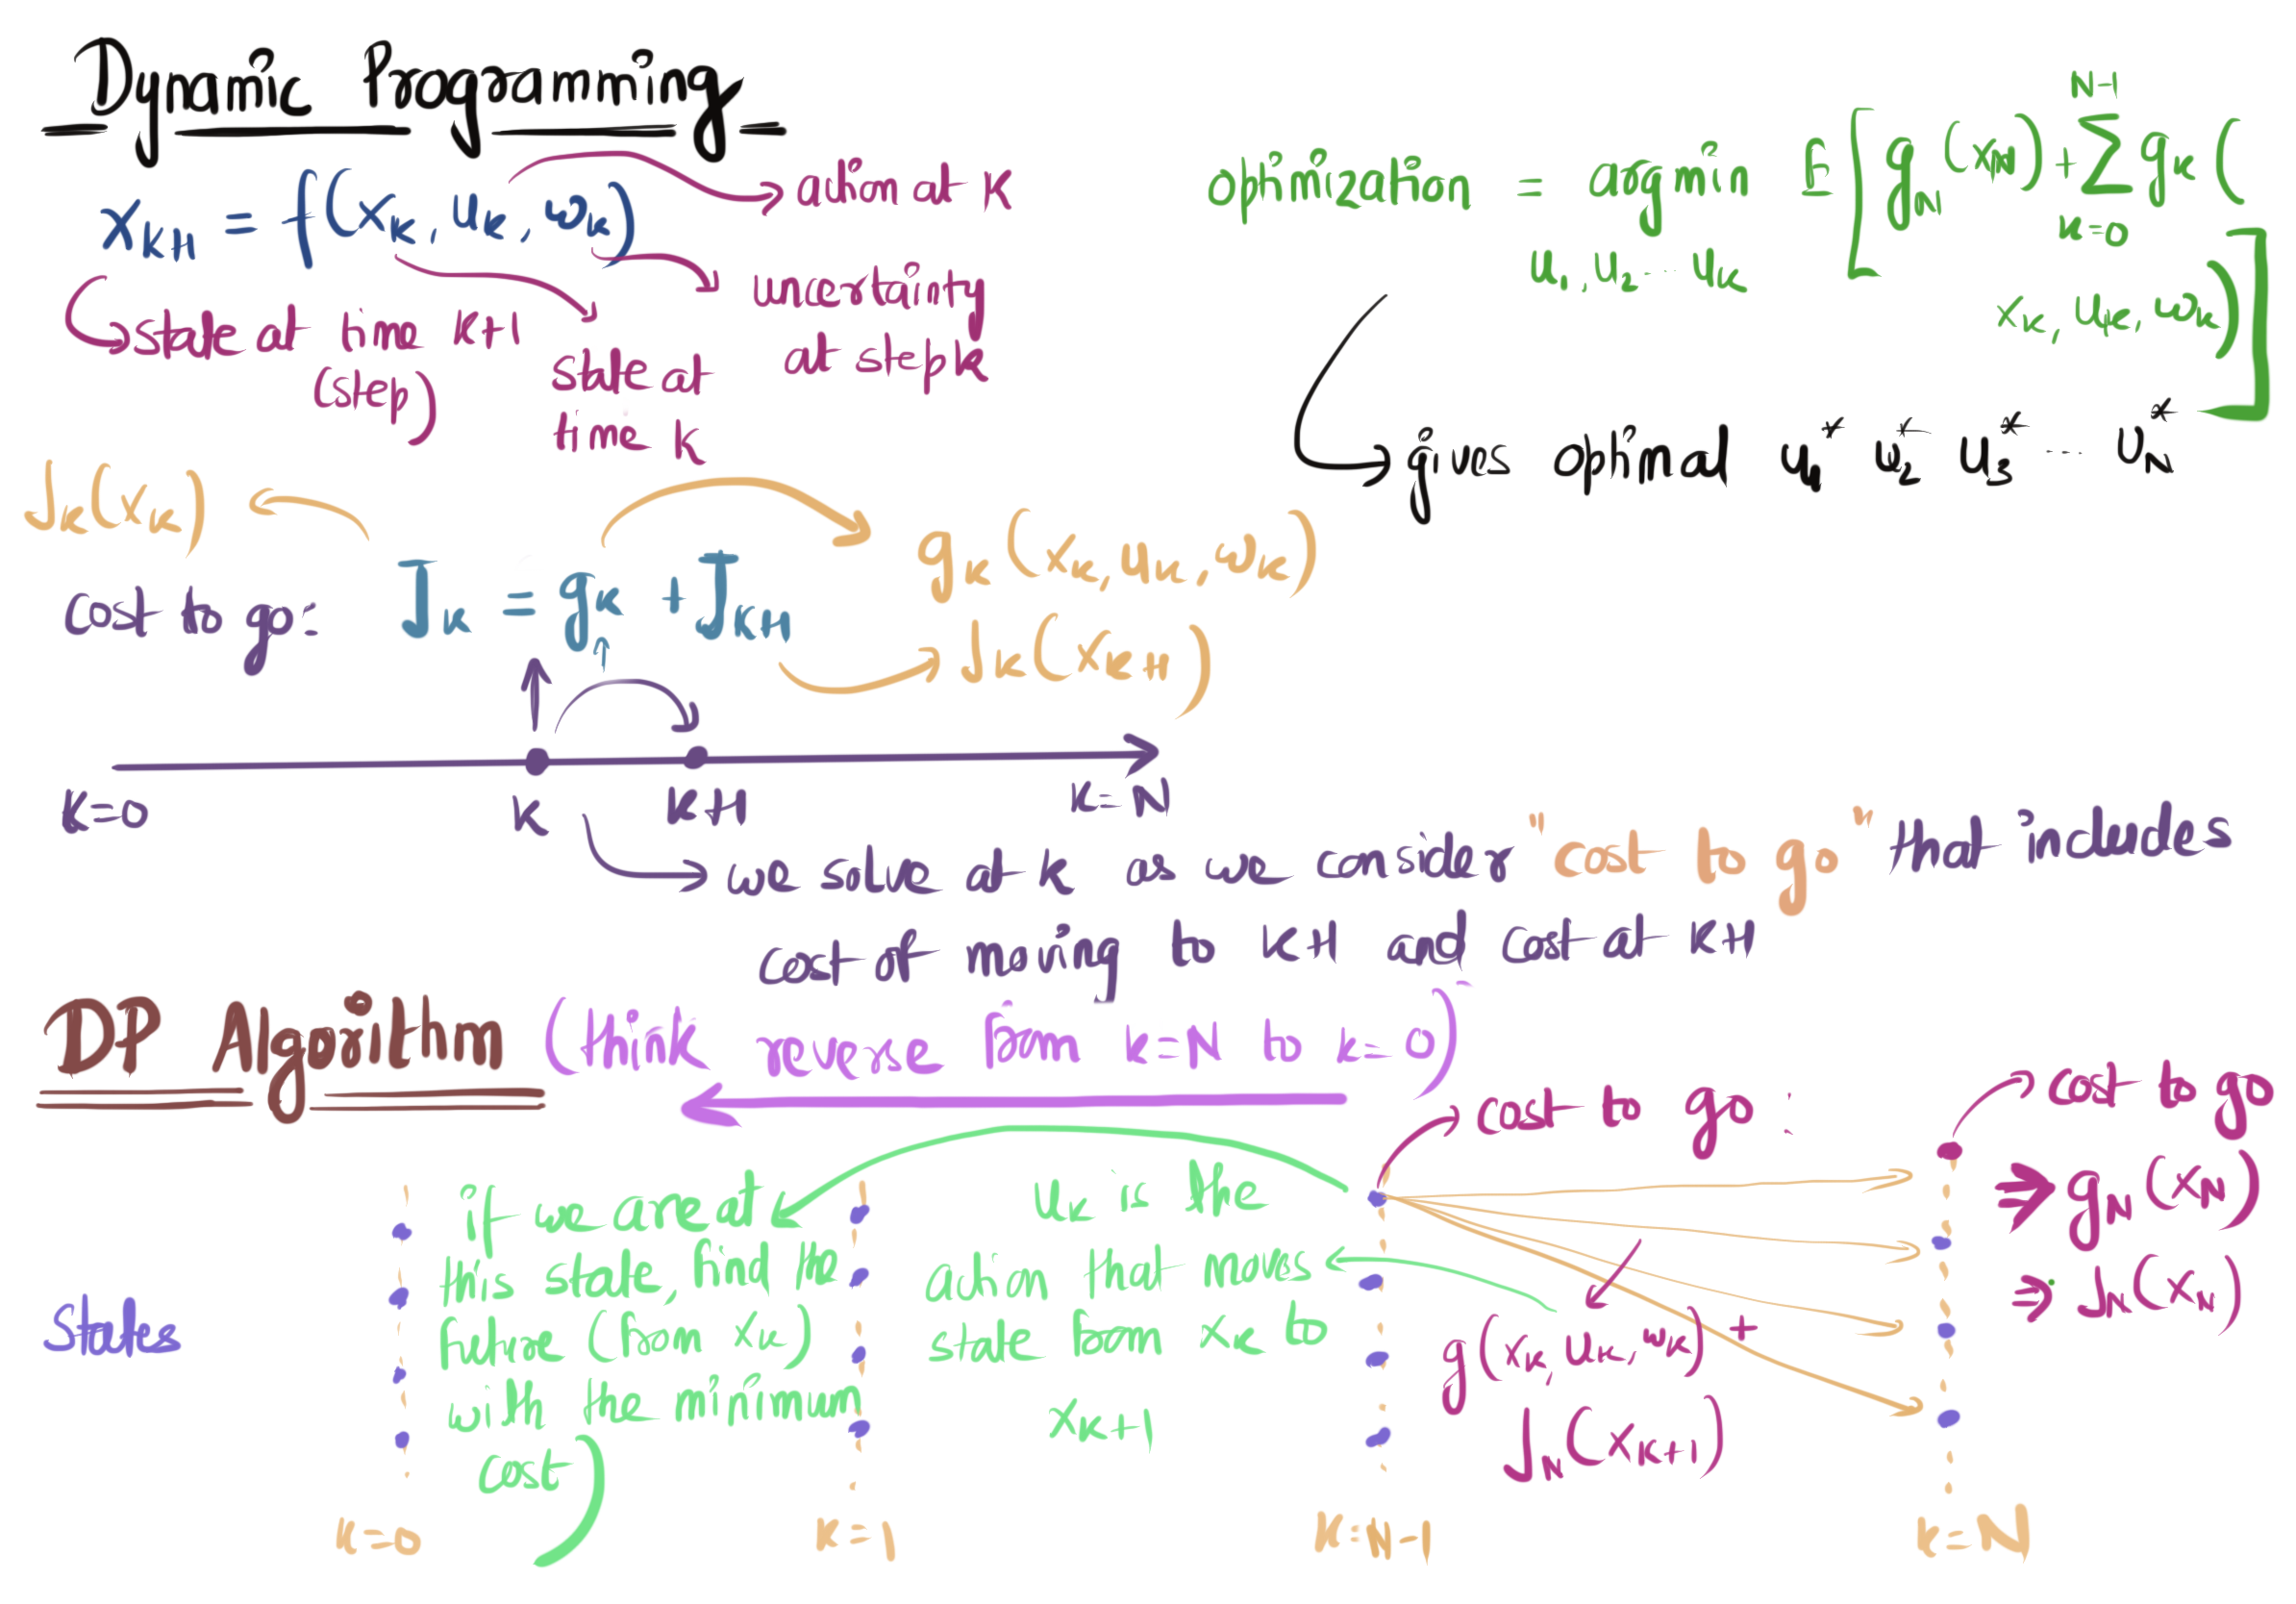 Dynamic Programming
x_{k+1} = f(x_k, u_k, w_k)
action at k
uncertainty
at step k
state at time k+1
(step)
state at
time k
optimization = argmin E [ g_N(x_N) + Σ g_k (
N-1
k=0
u_1, u_2 ... u_k
x_k, u_k, w_k) ]
gives optimal u_1* u_2* u_3* ... u_N*
J_k(x_k)
cost to go: J_k = g_k + J_{k+1}
g_k(x_k, u_k, w_k)
J_k(x_{k+1})
k=0
k
k+1
k=N
we solve at k as we consider "cost to go" that includes
cost of moving to k+1 and cost at k+1
DP Algorithm (think reverse from k=N to k=0)
cost to go :
cost to go
⇒ g_N(x_N)
⇒ J_N(x_N)
States
if we are at
this state, find the
future (from x_k)
with the minimum
cost)
u_k is the
action that moves
state from x_k to
x_{k+1}
g(x_k, u_k, w_k) +
J_N(x_{k+1})
k=0
k=1
k=N-1
k=N